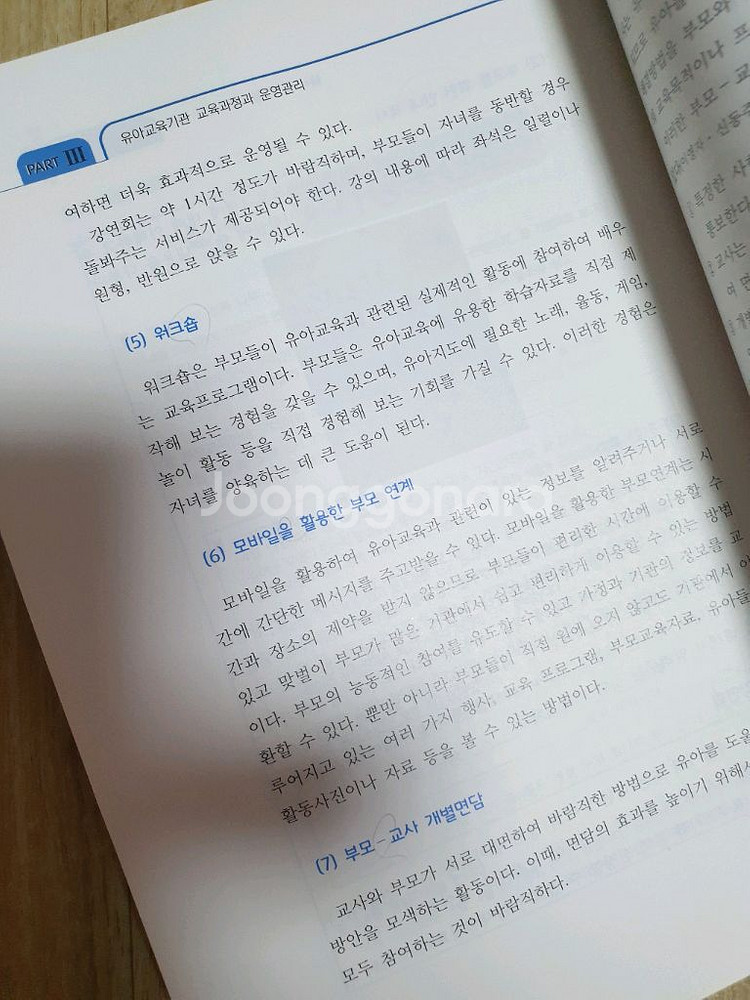 유아교육기관 교육과정과 운영관리
PART III
여하면 더욱 효과적으로 운영될 수 있다.
강연회는 약 1시간 정도가 바람직하며, 부모들이 자녀를 동반할 경우
돌봐주는 서비스가 제공되어야 한다. 강의 내용에 따라 좌석은 일렬이나
원형, 반원으로 앉을 수 있다.
(5) 워크숍
워크숍은 부모들이 유아교육과 관련된 실제적인 활동에 참여하여 배우
는 교육프로그램이다. 부모들은 유아교육에 유용한 학습자료를 직접 제
작해 보는 경험을 갖을 수 있으며, 유아지도에 필요한 노래, 율동, 게임,
놀이 활동 등을 직접 경험해 보는 기회를 가질 수 있다. 이러한 경험은
자녀를 양육하는 데 큰 도움이 된다.
Joonggonara
(6) 모바일을 활용한 부모 연계
모바일을 활용하여 유아교육과 관련이 있는 정보를 알려주거나 서로
간에 간단한 메시지를 주고받을 수 있다. 모바일을 활용한 부모연계는 시
간과 장소의 제약을 받지 않으므로 부모들이 편리한 시간에 이용할 수
있고 맞벌이 부모가 많은 기관에서 쉽고 편리하게 이용할 수 있는 방법
이다. 부모의 능동적인 참여를 유도할 수 있고 가정과 기관의 정보를 교
환할 수 있다. 뿐만 아니라 부모들이 직접 원에 오지 않고도 기관에서
루어지고 있는 여러 가지 행사, 교육 프로그램, 부모교육자료, 유아들
활동사진이나 자료 등을 볼 수 있는 방법이다.
(7) 부모-교사 개별면담
교사와 부모가 서로 대면하여 바람직한 방법으로 유아를 도울
방안을 모색하는 활동이다. 이때, 면담의 효과를 높이기 위해서
모두 참여하는 것이 바람직하다.